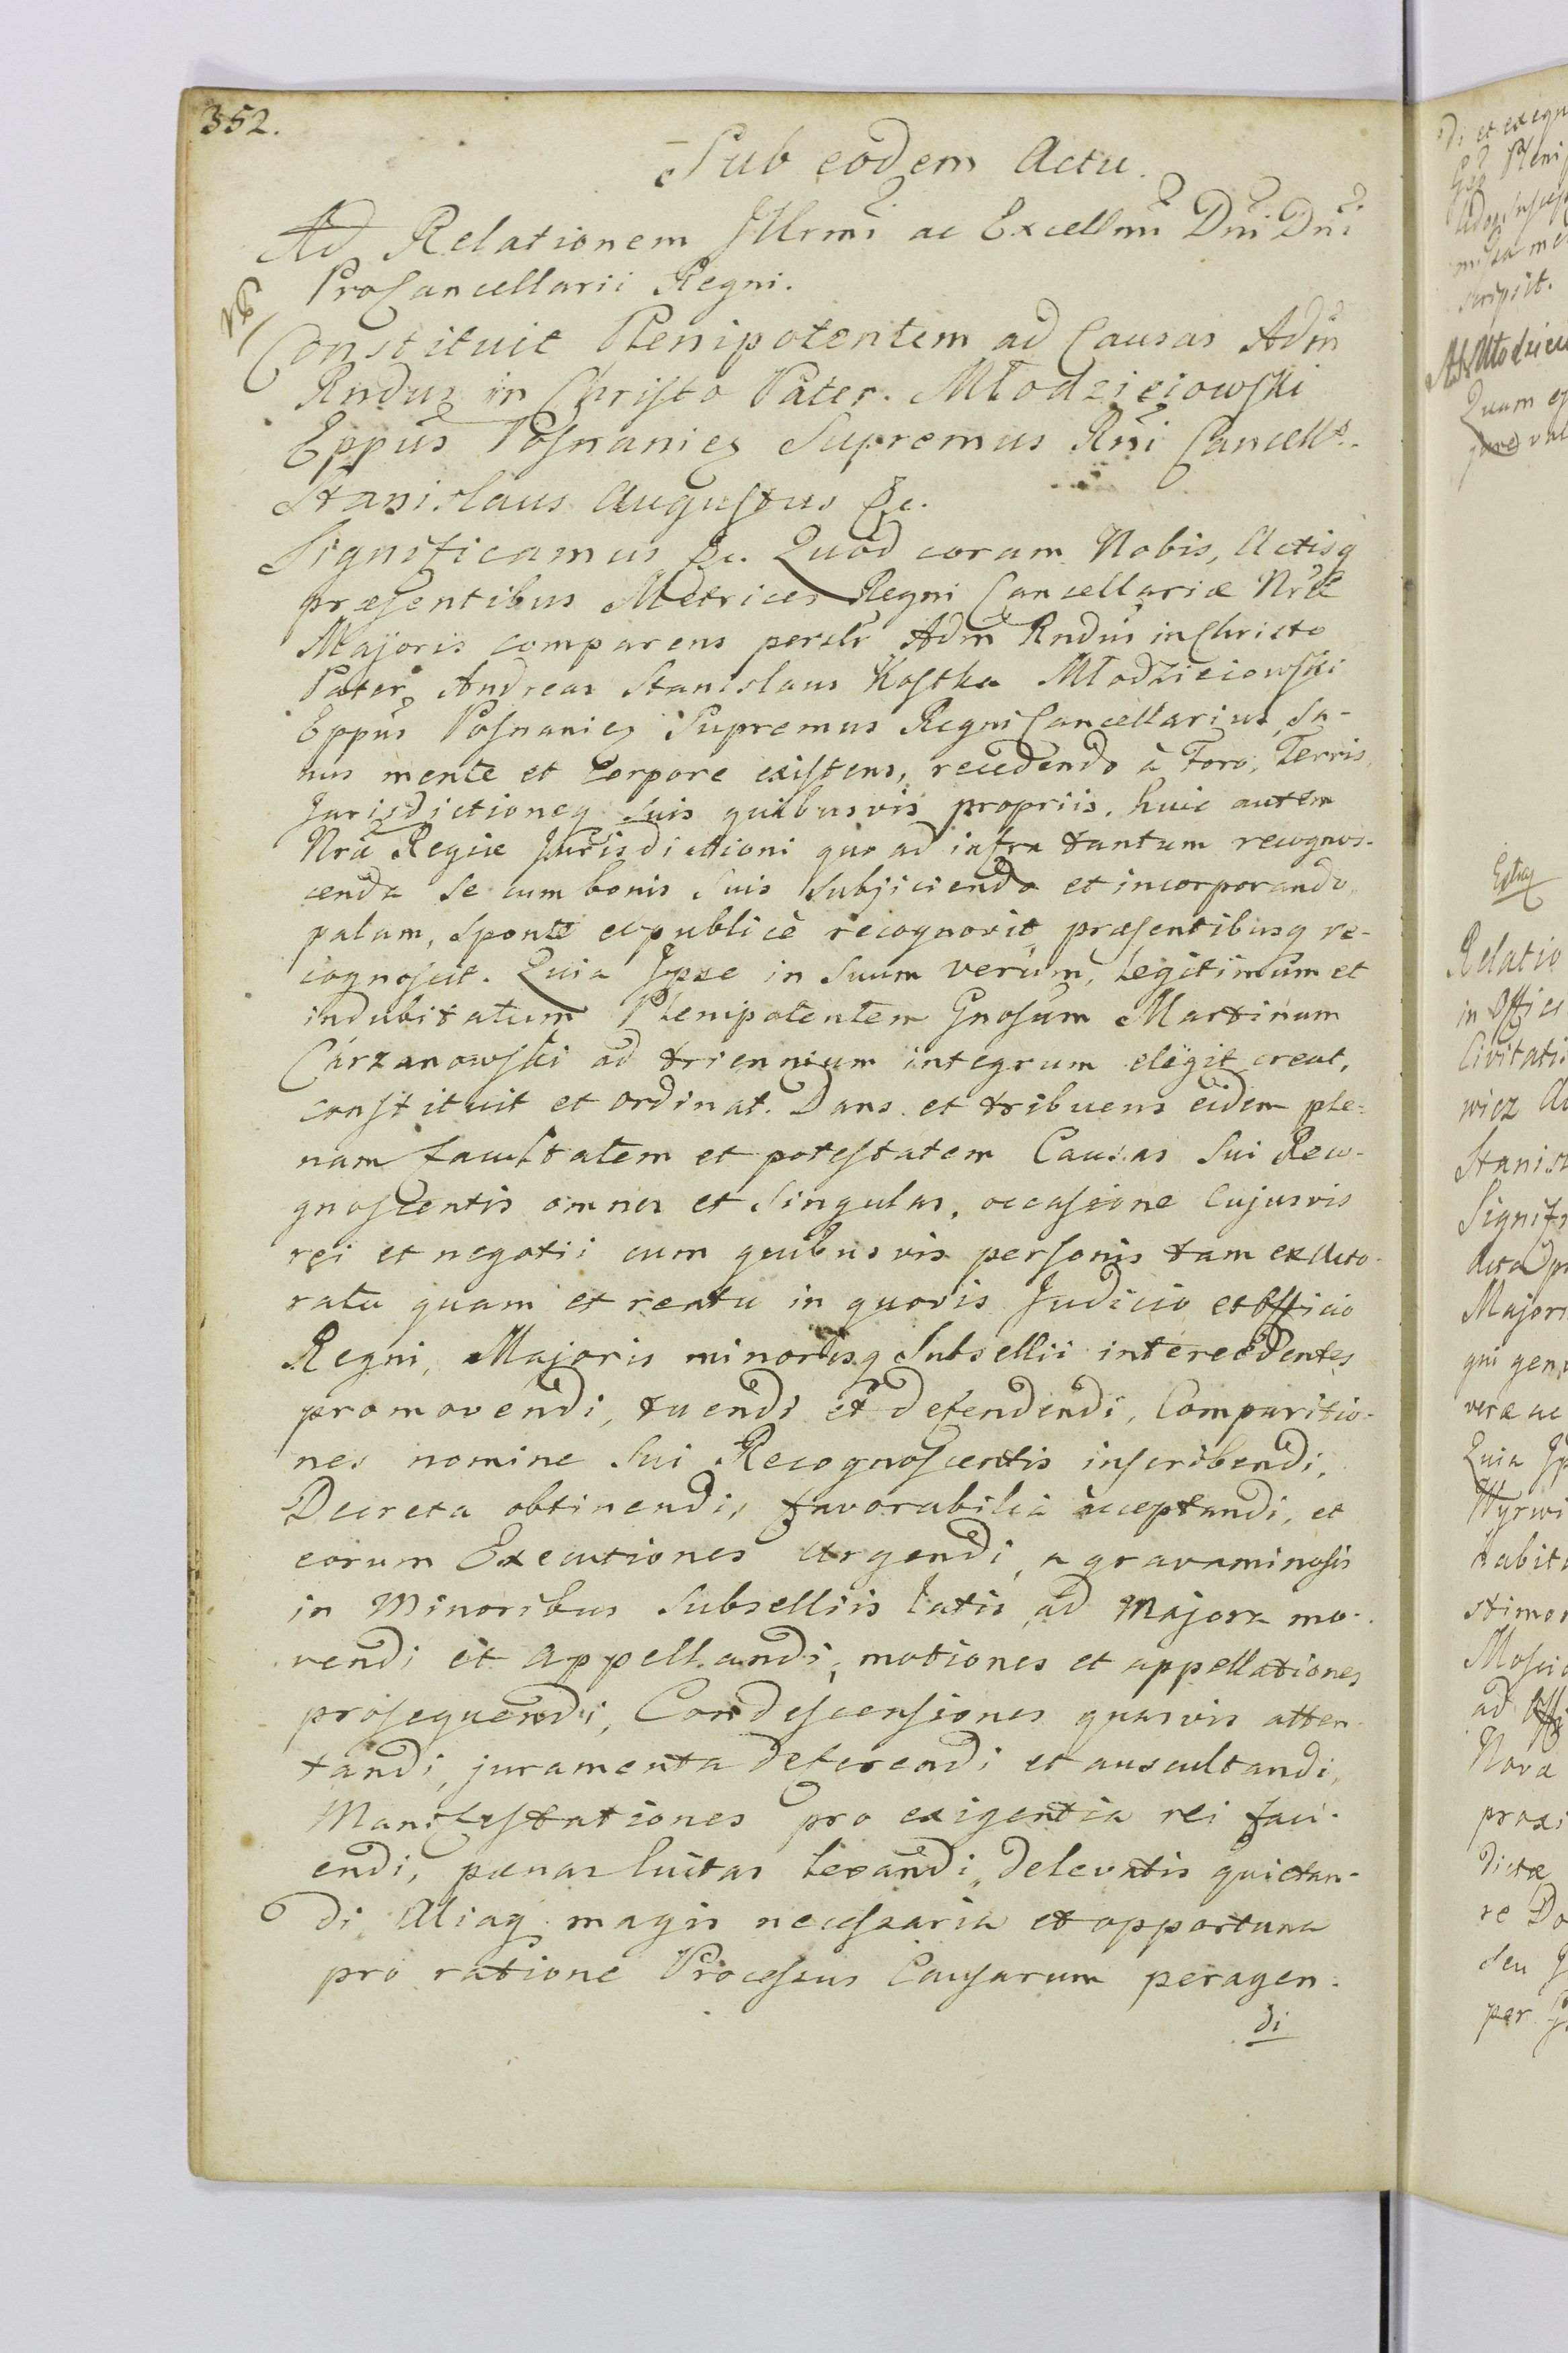 352.
Sub eodem Actu.
Ad Relationem Jllrmi ac Excellmi Dni Dni
ProCancellarii Regni.
Constituit Plenipotentem ad Causas Adm
Rndus in Christo Pater. Młodzieiowski
Eppus Posnanies Supremus Rni Cancells.
Stanislaus Augustus &c.
Significamus &c. Quod coram Nobis, Actisq
præsentibus Metrices Regni Cancellariæ Nræ
Majoris comparens persl͠r Adm Rndus in Christo
Pater Andreas Stanislaus Kostka Młodzieiowski
Eppus Posnanies Supremus Regni Cancellarius, Sa-
nus mente et Corpore existens, recedendo à Foro, Terris,
Jurisdictioneq suis quibusvis propriis, huic autem
Nræ Regiæ Jurisdictioni quo ad infra tantum recognos-
cenda se cum bonis suis subjiciendo et incorporando
palam, sponte ac publicè recognovit, præsentibusq re-
cognoscit. Quia Ipse in Suum verum, legitimum et
indubitatum Plenipotentem Gnosum Martinum
Carzanowski ad triennium integrum elegit creat,
constituit et ordinat. Dans et tribuens eidem ple-
nam facultatem et potestatem Causas Sui Reco-
gnoscentis omnes et Singulas, occasione Cujusvis
rei et negotii cum quibusvis personis tam ex Acto-
ratu quam et reatu in quovis Judicio et Officio
Regni, Majoris minorisq Subsellii intercedentes
promovendi, tuendi et defendendi, Comparitio-
nes nomine Sui Recognoscentis inscribendi,
Decreta obtinendi, favorabilia acceptandi, et
eorum Executiones Urgendi, a gravaminosis
in Minoribus Subselliis latis ad Majora mo-
vendi et appellandi, motiones et appellationes
prosequendi, Condescensiones quasvis atten-
tandi, juramenta deferendi et auscultandi,
Manifestationes pro exigentia rei faci-
endi, pænas luitas levandi, delevatis quietan-
di Aliaq magis necessaria et opportuna
pro ratione Processus Causarum peragen-
di
di et exequ
scripsit.
Młodzieio
Quam
Relatio
in Offici
Civitatis
wicz
Stanisl
Signifi
Acta
Majori
qui gen
veræ ac
Quia Ip
Wyrwi
habit
stimo
Moscic
ad
Nova
proxi
dictæ
re Do
seu
per